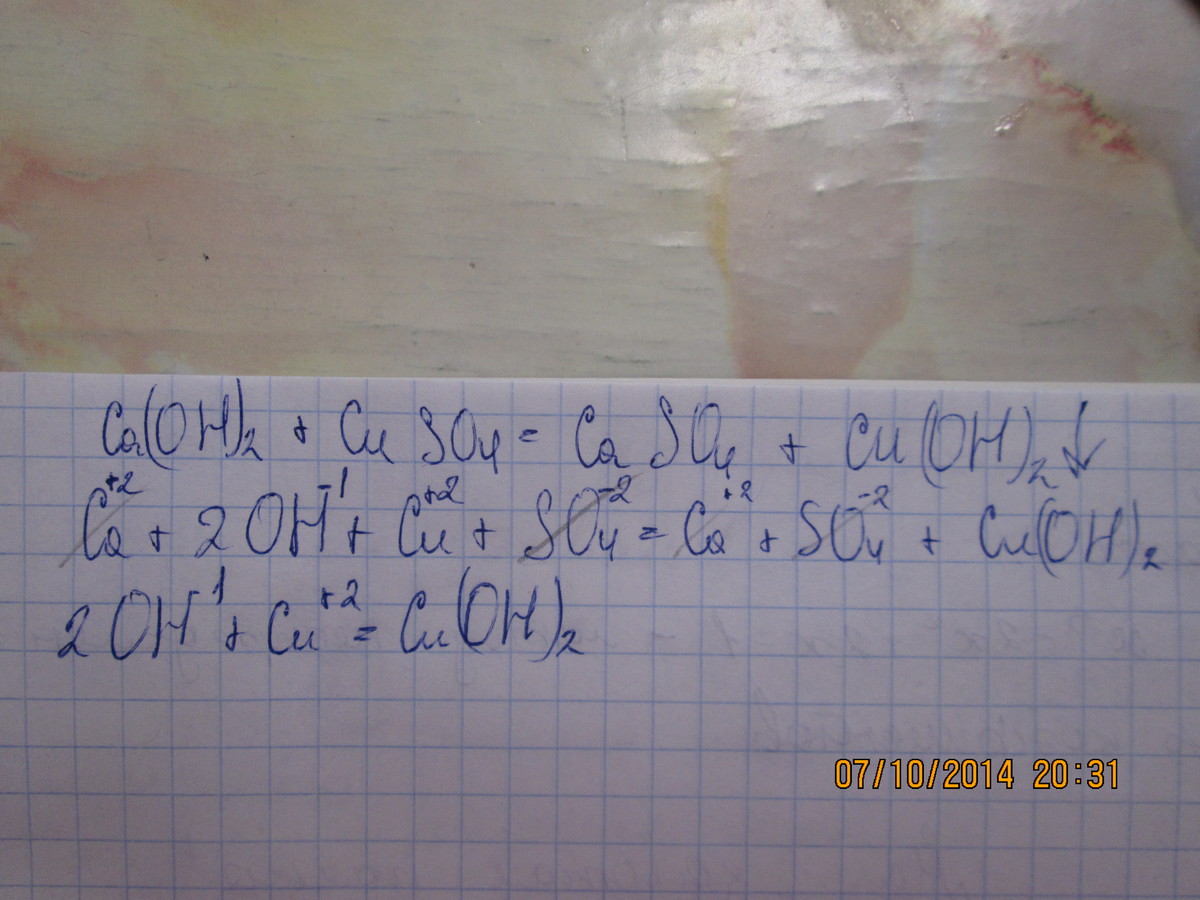 Ca(OH)₂ + CuSO₄ = CaSO₄ + Cu(OH)₂↓
Ca⁺² + 2OH⁻¹ + Cu⁺² + SO₄⁻² = Ca⁺² + SO₄⁻² + Cu(OH)₂
2OH⁻¹ + Cu⁺² = Cu(OH)₂
07/10/2014 20:31